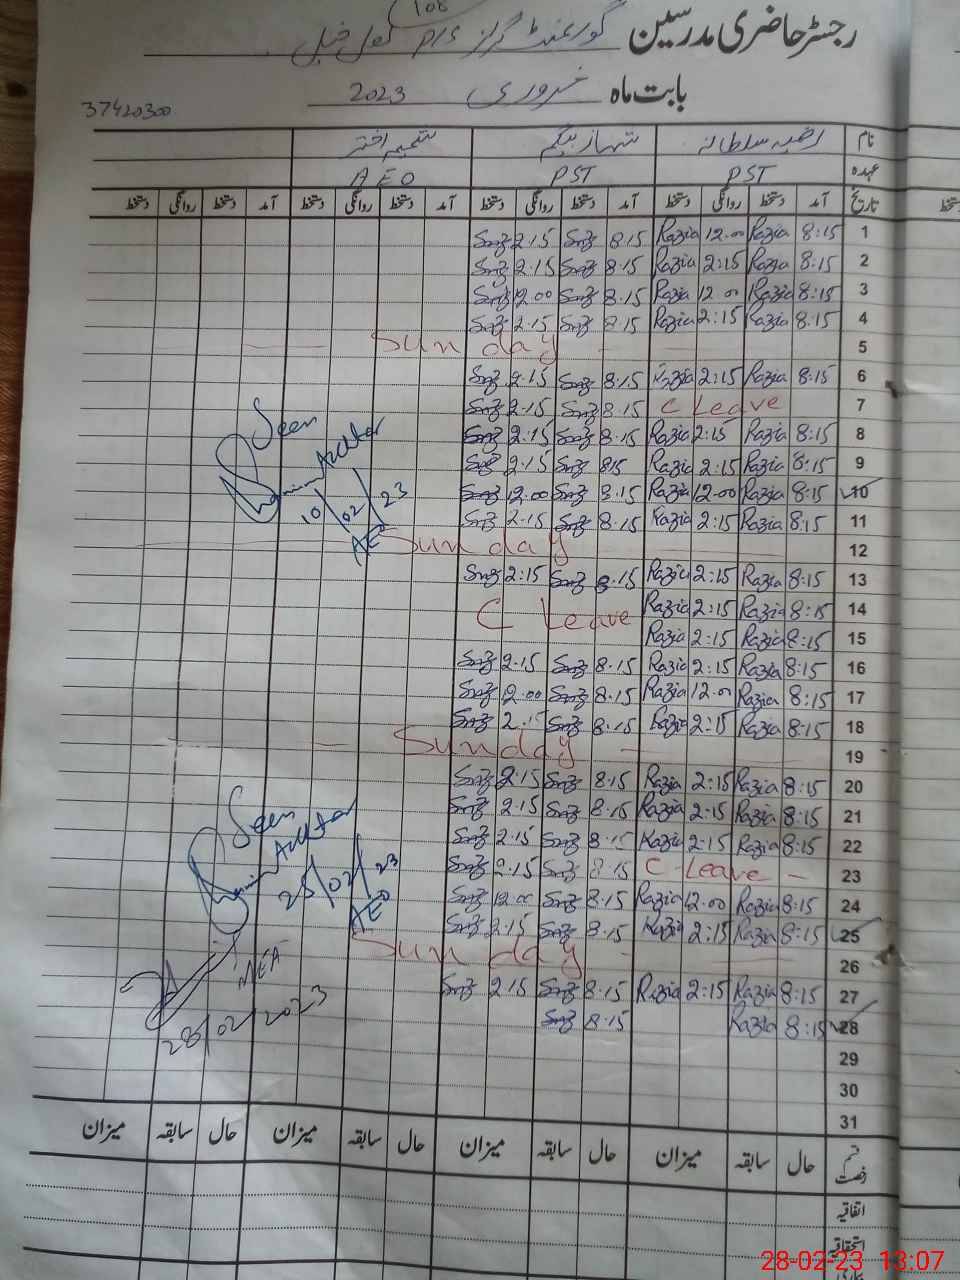 108
رجسٹر حاضری مدرسین گورنمنٹ گرلز P/S گھل خیل
بابت ماہ فروری 2023
37420300
نام رضیہ سلطانہ شہناز بیگم شمیم اختر
عہدہ PST PST AEO
تاریخ آمد دستخط روانگی دستخط آمد دستخط روانگی دستخط آمد دستخط روانگی دستخط آمد دستخط روانگی دستخط
1 8:15 Razia 12.00 Razia 8.15 2.15
2 8:15 Razia 2:15 Razia 8.15 2.15
3 8:15 Razia 12.00 Razia 8.15 12.00
4 8:15 Razia 2:15 Razia 8.15 2.15
5 Sunday
6 8:15 Razia 2:15 Razia 8.15 2.15
7 C Leave 8.15 2.15
8 8:15 Razia 2:15 Razia 8.15 2.15
9 8:15 Razia 2:15 Razia 8.15 2.15
10 8:15 Razia 12.00 Razia 8.15 12.00
11 8:15 Razia 2:15 Razia 8.15 2.15
Seen
Shamim Akhtar
10/02/23
AEO
12 Sunday
13 8:15 Razia 2:15 Razia 8.15 2:15
14 8:15 Razia 2:15 Razia C Leave
15 8:15 Razia 2:15 Razia
16 8:15 Razia 2:15 Razia 8.15 2.15
17 8:15 Razia 12.00 Razia 8.15 12.00
18 8:15 Razia 2:15 Razia 8.15 2.15
19 Sunday
20 8:15 Razia 2:15 Razia 8.15 2.15
21 8:15 Razia 2:15 Razia 8.15 2.15
22 8:15 Razia 2:15 Razia 8.15 2.15
23 C Leave 8.15 2.15
24 8:15 Razia 12.00 Razia 8.15 12.00
25 8:15 Razia 2:15 Razia 8.15 2.15
Seen
Shamim Akhtar
25/02/23
AEO
26 Sunday
27 8:15 Razia 2:15 Razia 8.15 2.15
28 8:15 Razia 8.15
MEA
28/02/2023
29
30
31
قسم رخصت حال سابقہ میزان حال سابقہ میزان حال سابقہ میزان حال سابقہ میزان
اتفاقیہ
استحقاقیہ
28-02-23 13:07